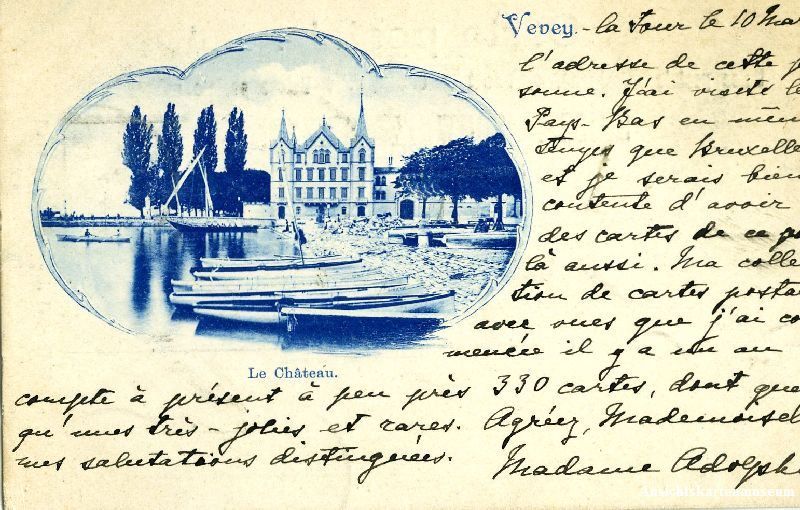 Vevey. - la Tour le 10 Mar
l'adresse de cette p
sonne. J'ai visité le
Pays-Bas en mêm
temps que Bruxelle
et je serais bien
contente d'avoir
des cartes de ce pa
là aussi. Ma collec
tion de cartes posta
avec vues que j'ai co
mencée il y a un an
Le Château.
compte à présent à peu près 330 cartes, dont que
qu'unes très-jolies et rares. Agréez, Mademoisel
mes salutations distinguées.
Madame Adolph
Ansichtskartenmuseum